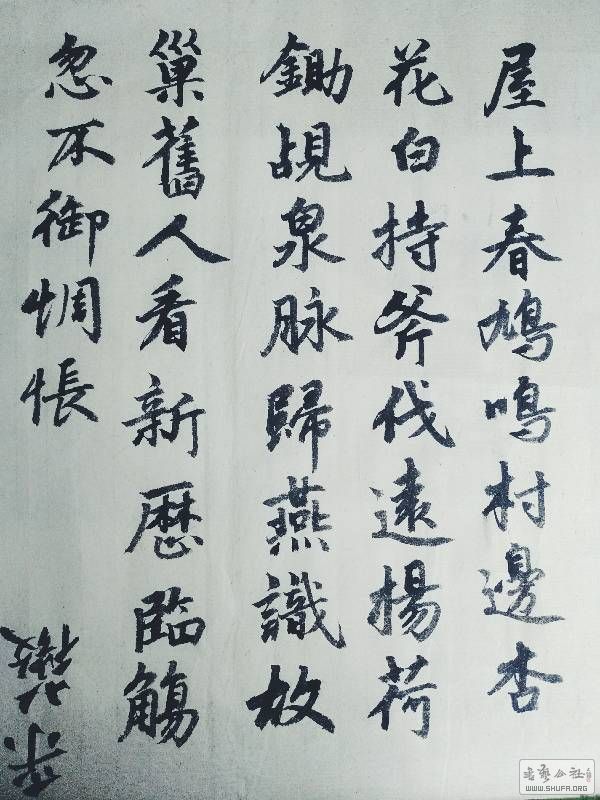 屋上春鳩鳴村邊杏
花白持斧伐遠揚荷
鋤覘泉脉歸燕識故
巢舊人看新曆臨觴
忽不御惆悵
書藝公社
WWW.SHUFA.ORG